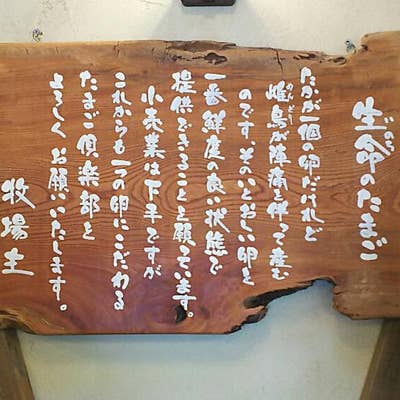 生命のたまご
たかが一個の卵だけれど
雌鳥が陣痛を伴って産む
のです、そのいとおしい卵を
一番鮮度の良い状態で
提供できることを願っています。
小売業は下手ですが
これからも一つの卵にこだわる
たまご倶楽部を
よろしくお願いいたします。
牧場主